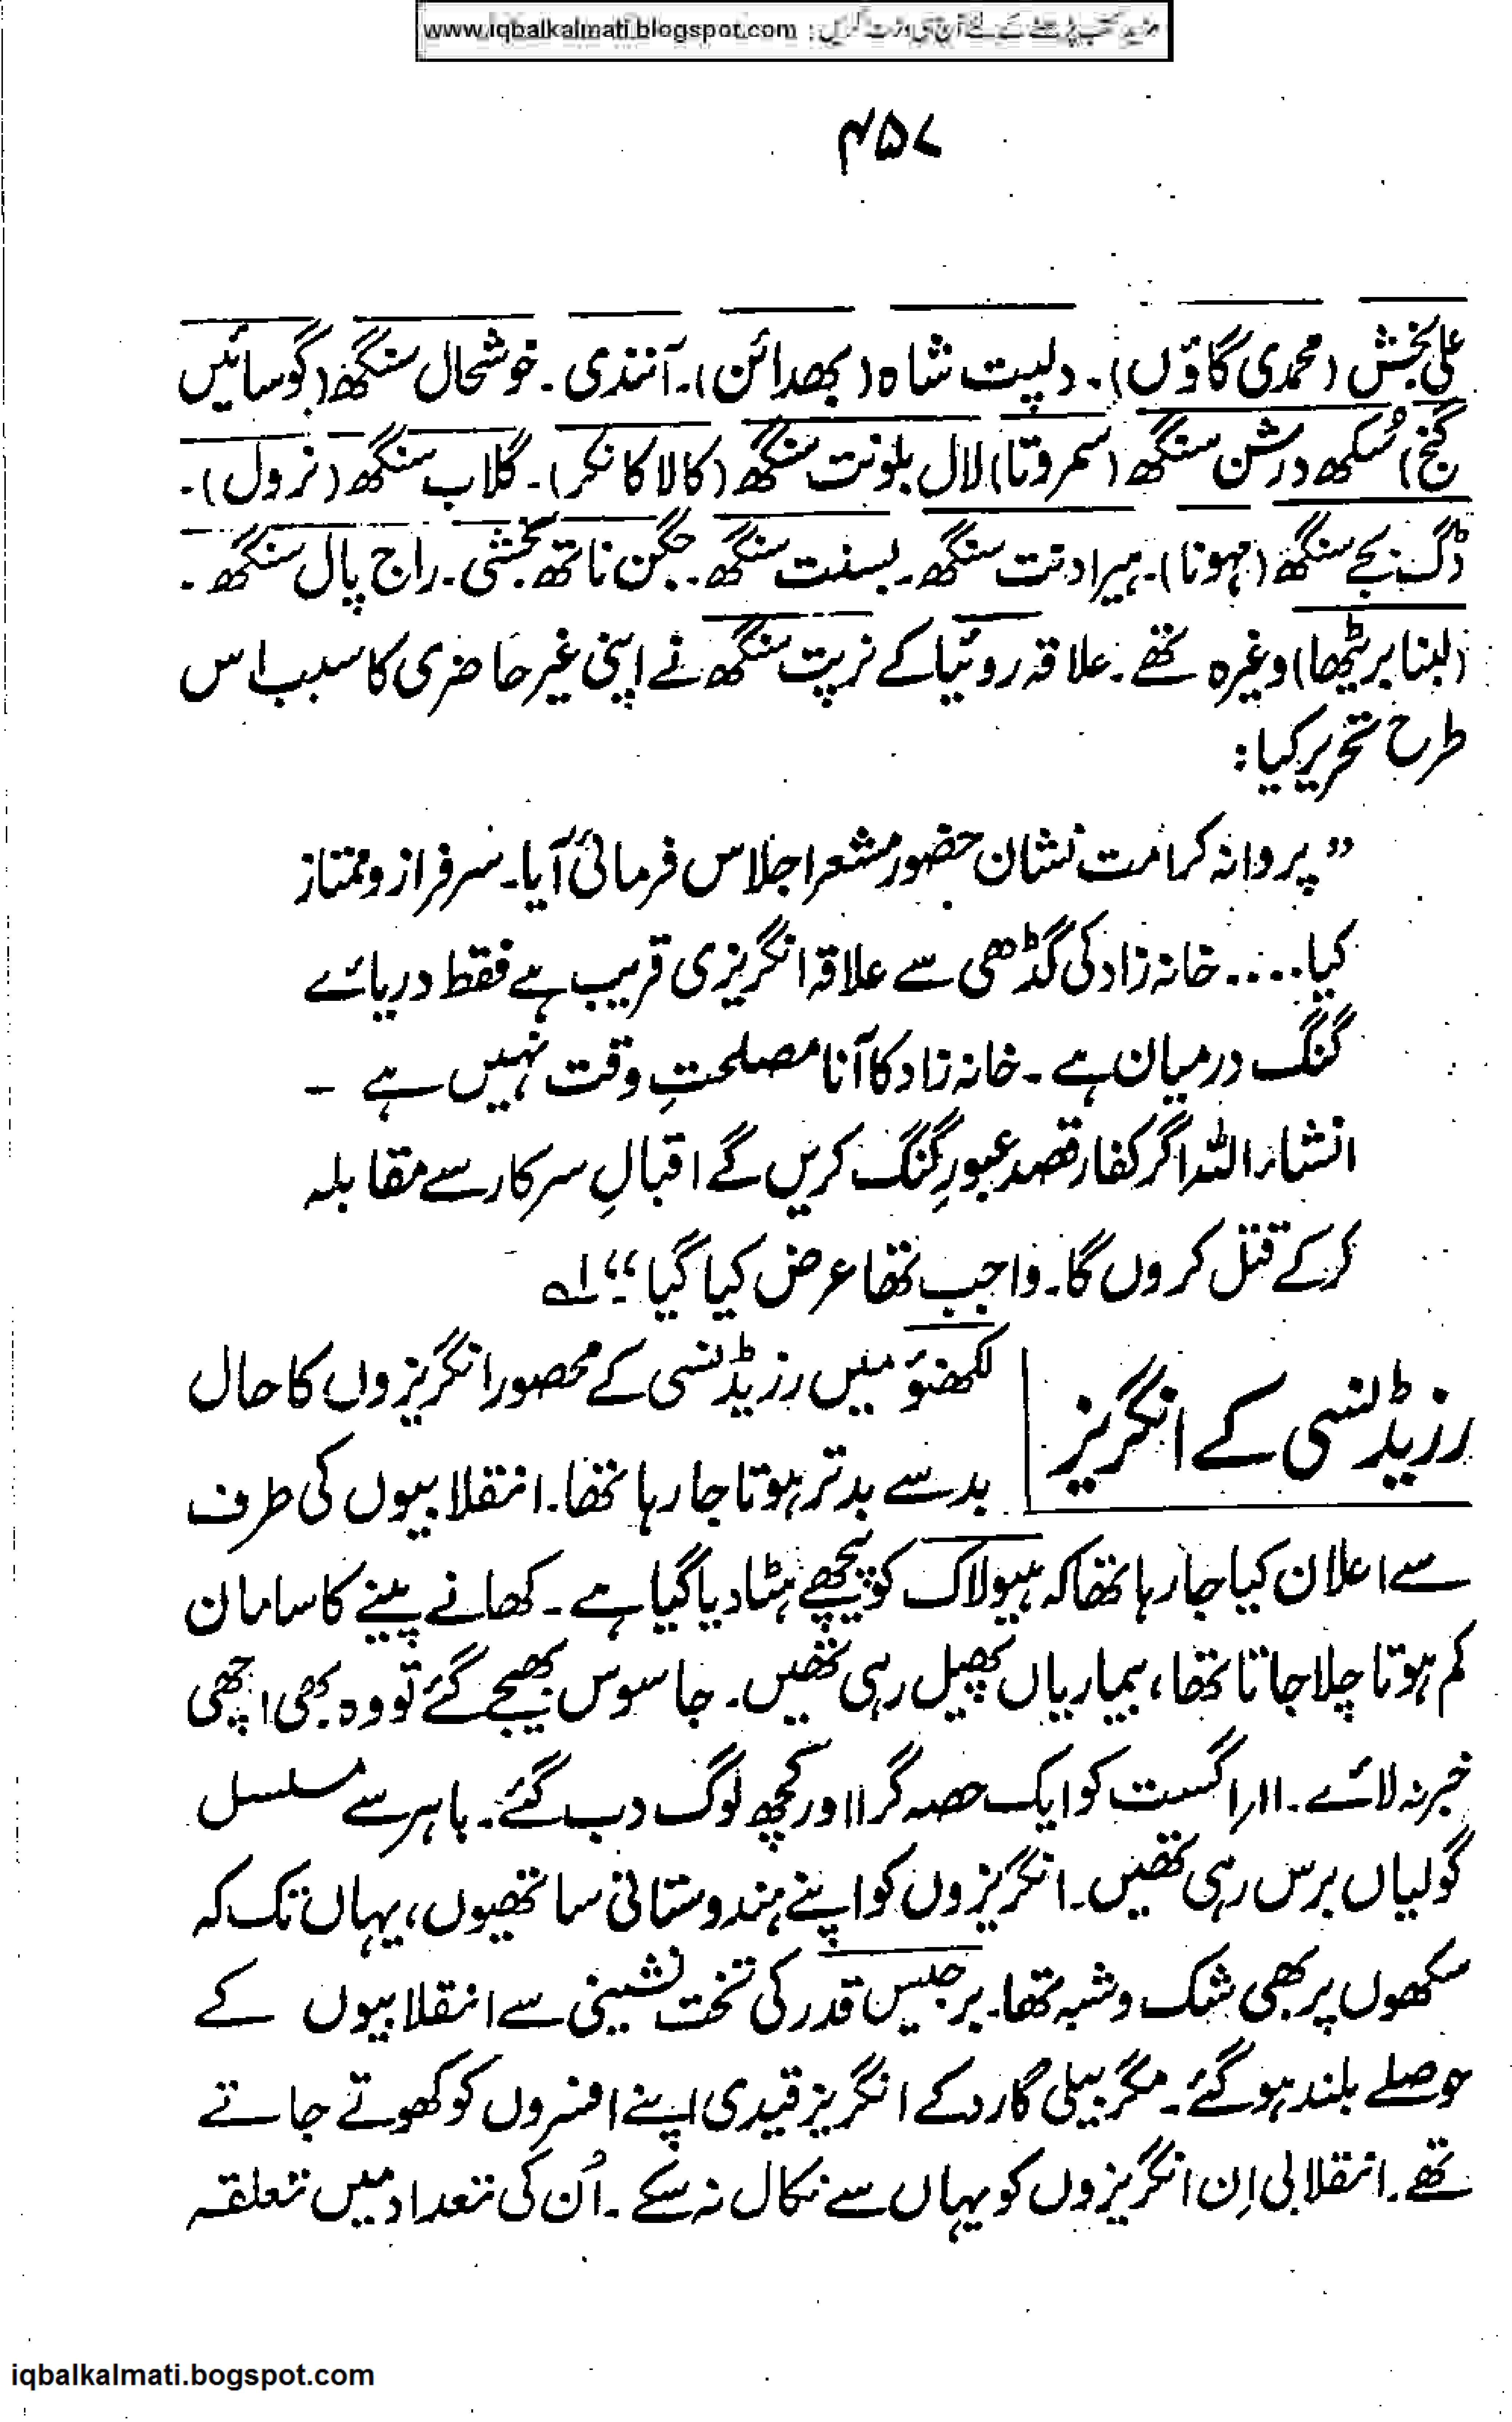 مزید کتب پڑھنے کے لئے آج ہی وزٹ کریں : www.iqbalkalmati.blogspot.com
۴۵۷
علی بخش (محمدی گاؤں)۔ دلپت شاہ (بھدائن)۔ آنندی ۔ خوشحال سنگھ (گوسائیں
گنج) سُکھ درشن سنگھ (سمروتا) لال بلونت سنگھ (کالا کانکر)۔ گلاب سنگھ (نرول)۔
ڈگ بجے سنگھ (مہونا)۔ ہیرا دت سنگھ ۔ بسنت سنگھ ۔ جگن ناتھ بخشی ۔ راج پال سنگھ ۔
(لبنا برٹیھا) وغیرہ تھے ۔ علاقہ روئیا کے نرپت سنگھ نے اپنی غیر حاضری کا سبب اس
طرح تحریر کیا :
”پروانہ کرامت نشان حضور مشعر اجلاس فرمائی آیا۔ سرفراز و ممتاز
کیا .... خانہ زاد کی گڈھی سے علاقہ انگریزی قریب ہے فقط دریائے
گنگ درمیان ہے ۔ خانہ زاد کا آنا مصلحتِ وقت نہیں ہے ۔
انشاء اللہ اگر کفار قصد عبورِ گنگ کریں گے اقبالِ سرکار سے مقابلہ
کر کے قتل کروں گا۔ واجب تھا عرض کیا گیا“ ۱ے
رزیڈنسی کے انگریز
لکھنؤ میں رزیڈنسی کے محصور انگریزوں کا حال
بد سے بدتر ہوتا جا رہا تھا۔ انقلابیوں کی طرف
سے اعلان کیا جا رہا تھا کہ ہیولاک کو پیچھے ہٹا دیا گیا ہے ۔ کھانے پینے کا سامان
کم ہوتا چلا جاتا تھا، بیماریاں پھیل رہی تھیں ۔ جاسوس بھیجے گئے تو وہ بھی اچھی
خبر نہ لائے ۔ ۱۱؍ اگست کو ایک حصہ گرا اور کچھ لوگ دب گئے ۔ باہر سے مسلسل
گولیاں برس رہی تھیں ۔ انگریزوں کو اپنے ہندوستانی ساتھیوں، یہاں تک کہ
سکھوں پر بھی شک و شبہ تھا۔ برجیس قدر کی تخت نشینی سے انقلابیوں کے
حوصلے بلند ہو گئے ۔ مگر بیلی گارد کے انگریز قیدی اپنے افسروں کو کھوتے جاتے
تھے ۔ انقلابی اِن انگریزوں کو یہاں سے نکال نہ سکے ۔ اُن کی تعداد میں تعلقہ
iqbalkalmati.bogspot.com